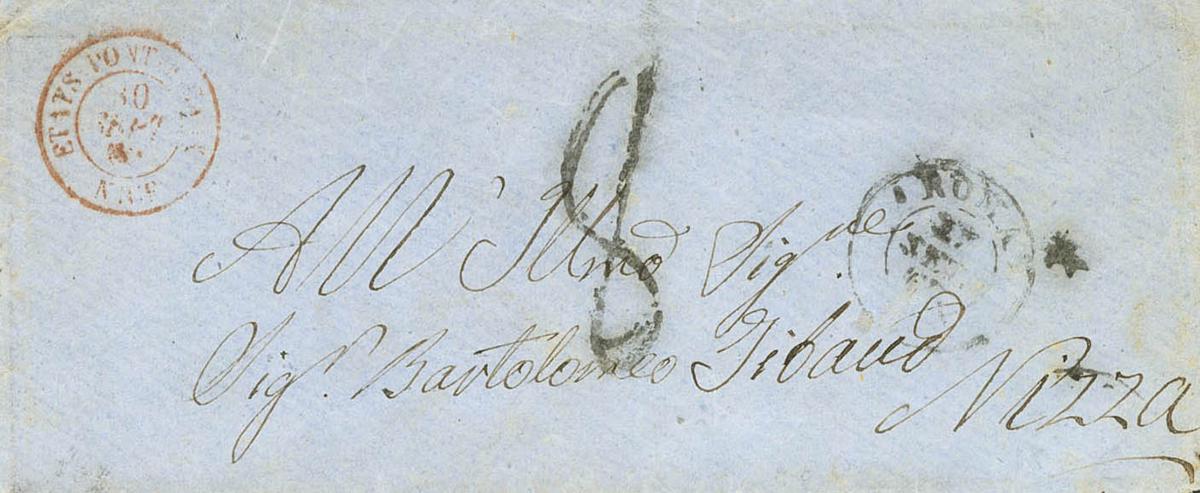 ETATS PONT.
30
8
ROMA
All' Illmo Sig.re
Sig.r Bartolomeo Tibaud
Nizza